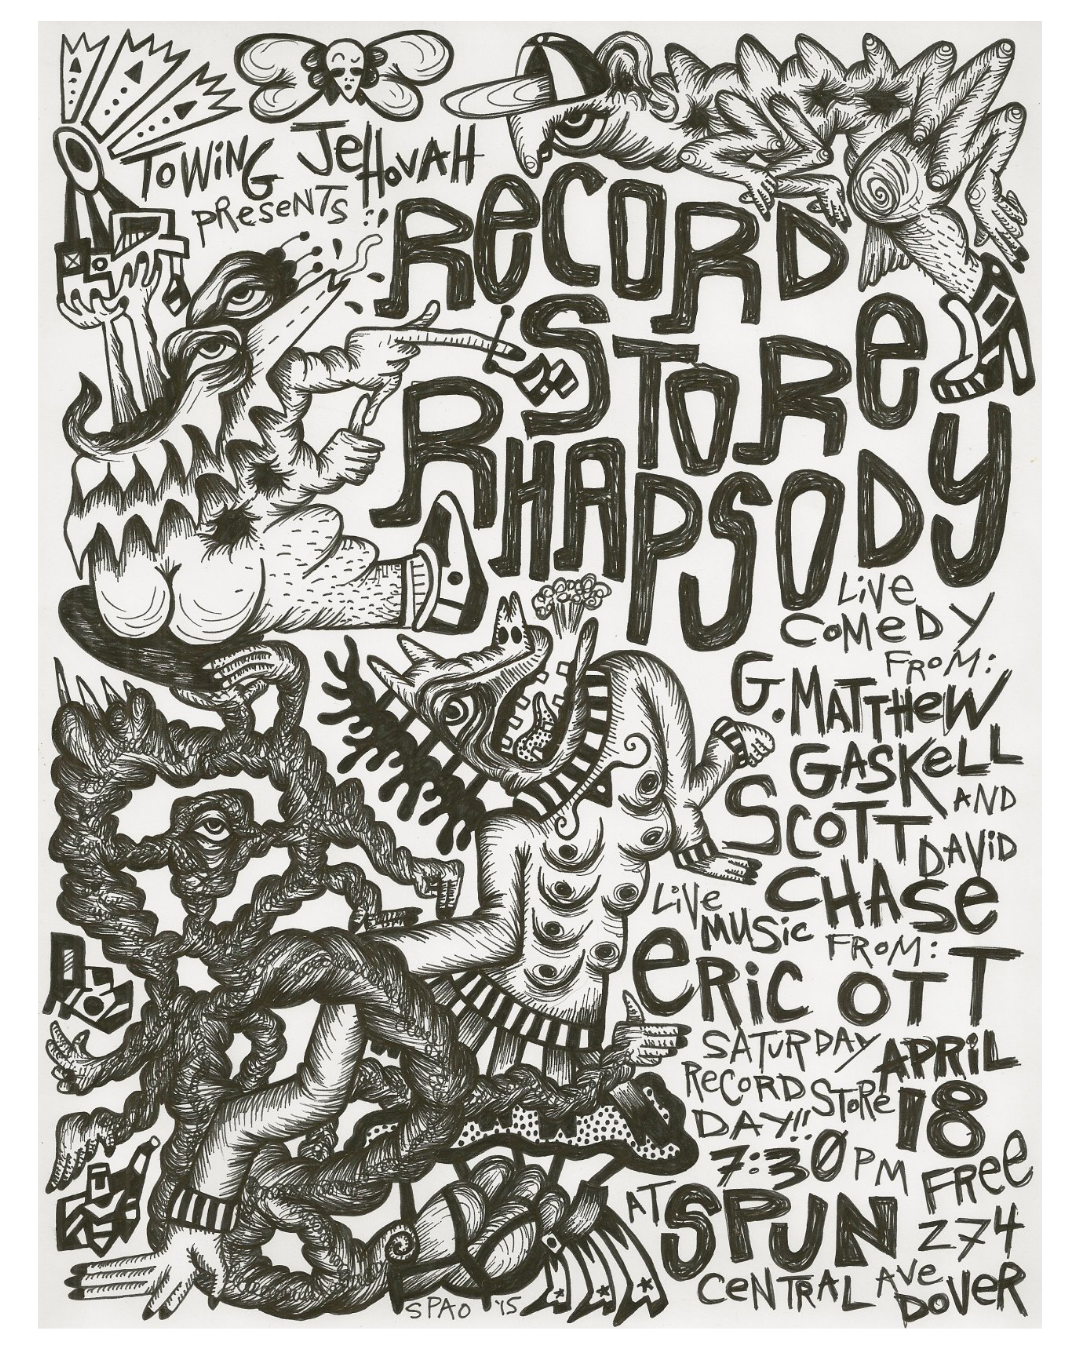 TOWING JEHOVAH
PRESENTS:
RECORD
STORE
RHAPSODY
LIVE
COMEDY
FROM:
G. MATTHEW
GASKELL
AND
SCOTT DAVID
CHASE
LIVE
MUSIC
FROM:
ERIC OTT
SATURDAY APRIL 18
RECORD STORE
DAY!!
7:30 PM FREE
AT SPUN 274
CENTRAL AVE
DOVER
SPAO '15